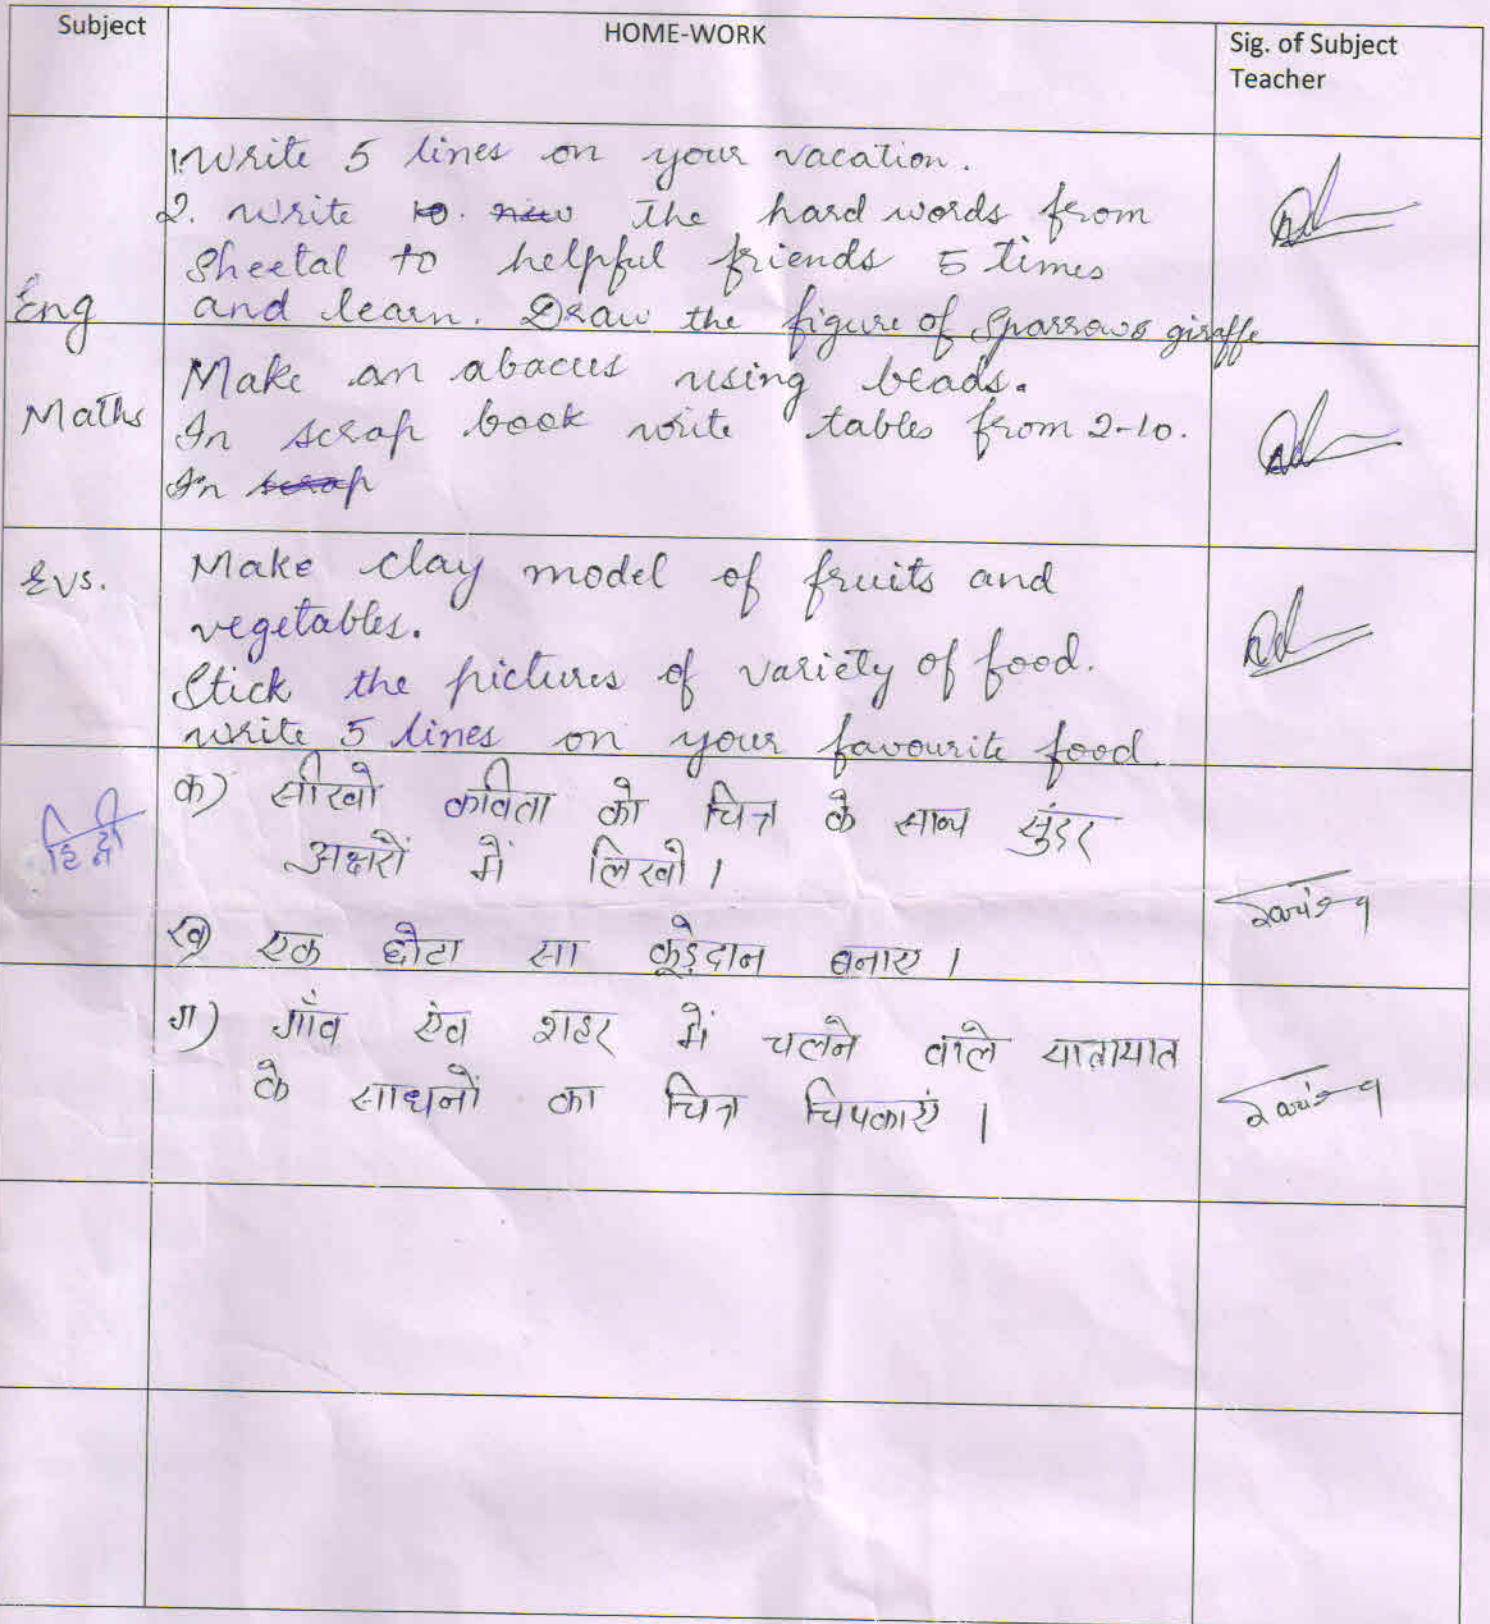 Subject HOME-WORK Sig. of Subject
Teacher
1. Write 5 lines on your vacation.
2. Write 10. new the hard words from
Sheetal to helpful friends 5 times
Eng and learn. Draw the figure of Sparrow & giraffe
Make an abacus using beads.
Maths In scrap book write tables from 2-10.
In scrap
Evs. Make clay model of fruits and
vegetables.
Stick the pictures of variety of food.
write 5 lines on your favourite food.
क) सीखो कविता को चित्र के साथ सुंदर
हिन्दी अक्षरों में लिखो ।
ख) एक छोटा सा कूड़ेदान बनाए ।
ग) गाँव एंव शहर में चलने वाले यातायात
के साधनों का चित्र चिपकाएं ।